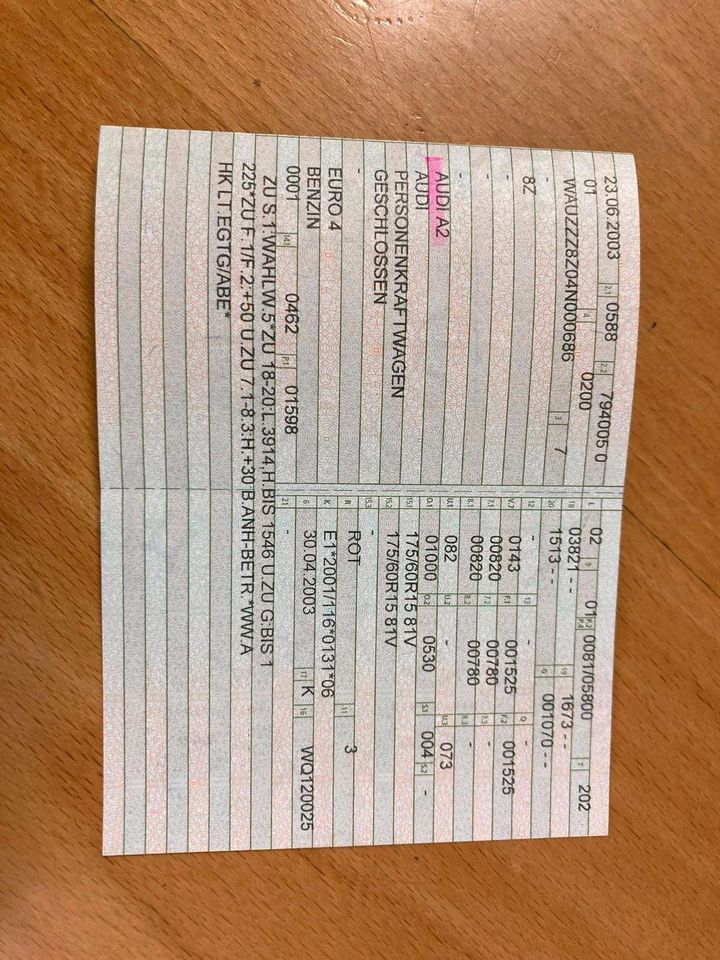 23.06.2003 2.1 0588 2.2 794005 0
01 4 0200
WAUZZZ8Z04N000686 3 7
-
8Z
-
-
-
AUDI A2
AUDI
PERSONENKRAFTWAGEN
GESCHLOSSEN
-
EURO 4
BENZIN
0001 14.1 0462 P.1 01598
L 02 9 01 P.2 P.4 0081/05800 T 202
18 03821 - - 19 1673 - -
20 1513 - - G 001070 - -
12 - 13 - Q -
V.7 0143 F.1 001525 F.2 001525
7.1 00820 7.2 00780 7.3 -
8.1 00820 8.2 00780 8.3 -
U.1 082 U.2 - U.3 073
O.1 01000 O.2 0530 S.1 004 S.2 -
15.1 175/60R15 81V
15.2 175/60R15 81V
15.3 -
R ROT 11 3
K E1*2001/116*0131*06
6 30.04.2003 17 K 16 WQ120025
21 -
ZU S.1:WAHLW.5*ZU 18-20:L.3914,H.BIS 1546 U.ZU G:BIS 1
225*ZU F.1/F.2:+50 U.ZU 7.1-8.3:H.+30 B.ANH-BETR.*WW.A
HK LT.EGTG/ABE*